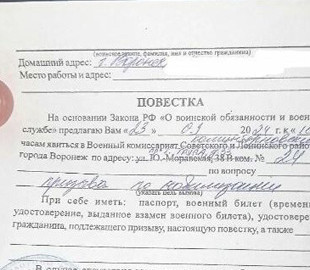 (воинское звание, фамилия, имя и отчество гражданина)
Домашний адрес: г. Воронеж
Место работы и адрес:
ПОВЕСТКА
На основании Закона РФ «О воинской обязанности и воен
службе» предлагаю Вам «23» 01 2024 г. к «10
часам явиться в Военный комиссариат Советского и Ленинского райо
города Воронеж по адресу: ул. Ю.-Моравская, 38 В ком. № 24
по вопросу
призыва по мобилизации
(указать цель вызова)
При себе иметь: паспорт, военный билет (времен
удостоверение, выданное взамен военного билета), удостовере
гражданина, подлежащего призыву, настоящую повестку, а также
В случае